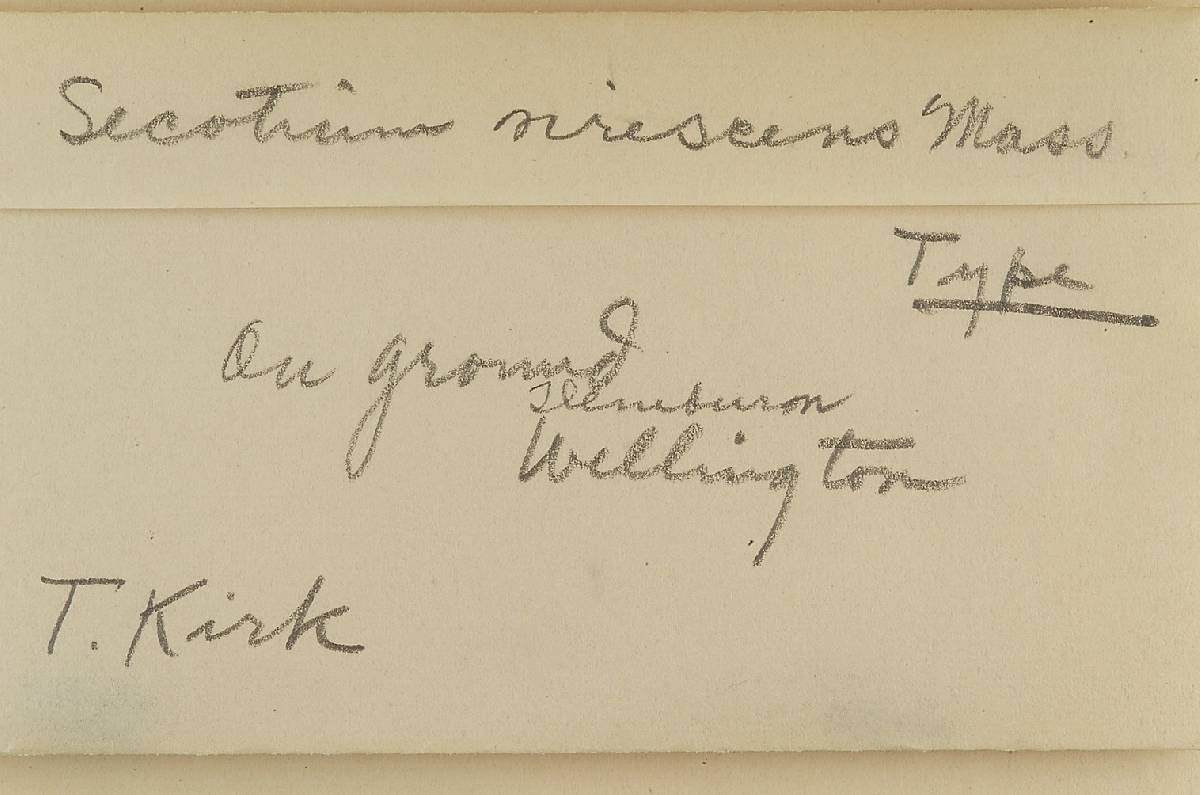 Secotium virescens Mass.
Type
On ground
Wellington
T. Kirk